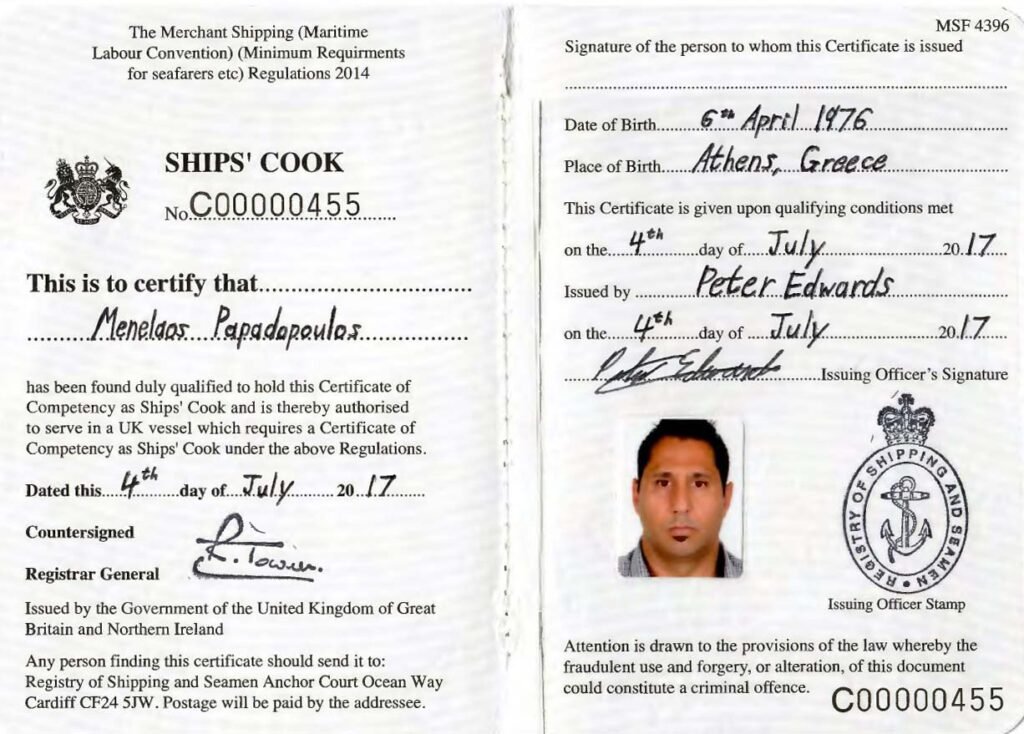 The Merchant Shipping (Maritime
Labour Convention) (Minimum Requirments
for seafarers etc) Regulations 2014
SHIPS' COOK
No C00000455
This is to certify that
Menelaos Papadopoulos
has been found duly qualified to hold this Certificate of
Competency as Ships' Cook and is thereby authorised
to serve in a UK vessel which requires a Certificate of
Competency as Ships' Cook under the above Regulations.
Dated this 4th day of July 2017
Countersigned
Registrar General
Issued by the Government of the United Kingdom of Great
Britain and Northern Ireland
Any person finding this certificate should send it to:
Registry of Shipping and Seamen Anchor Court Ocean Way
Cardiff CF24 5JW. Postage will be paid by the addressee.
MSF 4396
Signature of the person to whom this Certificate is issued
Date of Birth 6th April 1976
Place of Birth Athens, Greece
This Certificate is given upon qualifying conditions met
on the 4th day of July 2017
Issued by Peter Edwards
on the 4th day of July 2017
Peter Edwards Issuing Officer's Signature
REGISTRY OF SHIPPING AND SEAMEN
Issuing Officer Stamp
Attention is drawn to the provisions of the law whereby the
fraudulent use and forgery, or alteration, of this document
could constitute a criminal offence.
C00000455